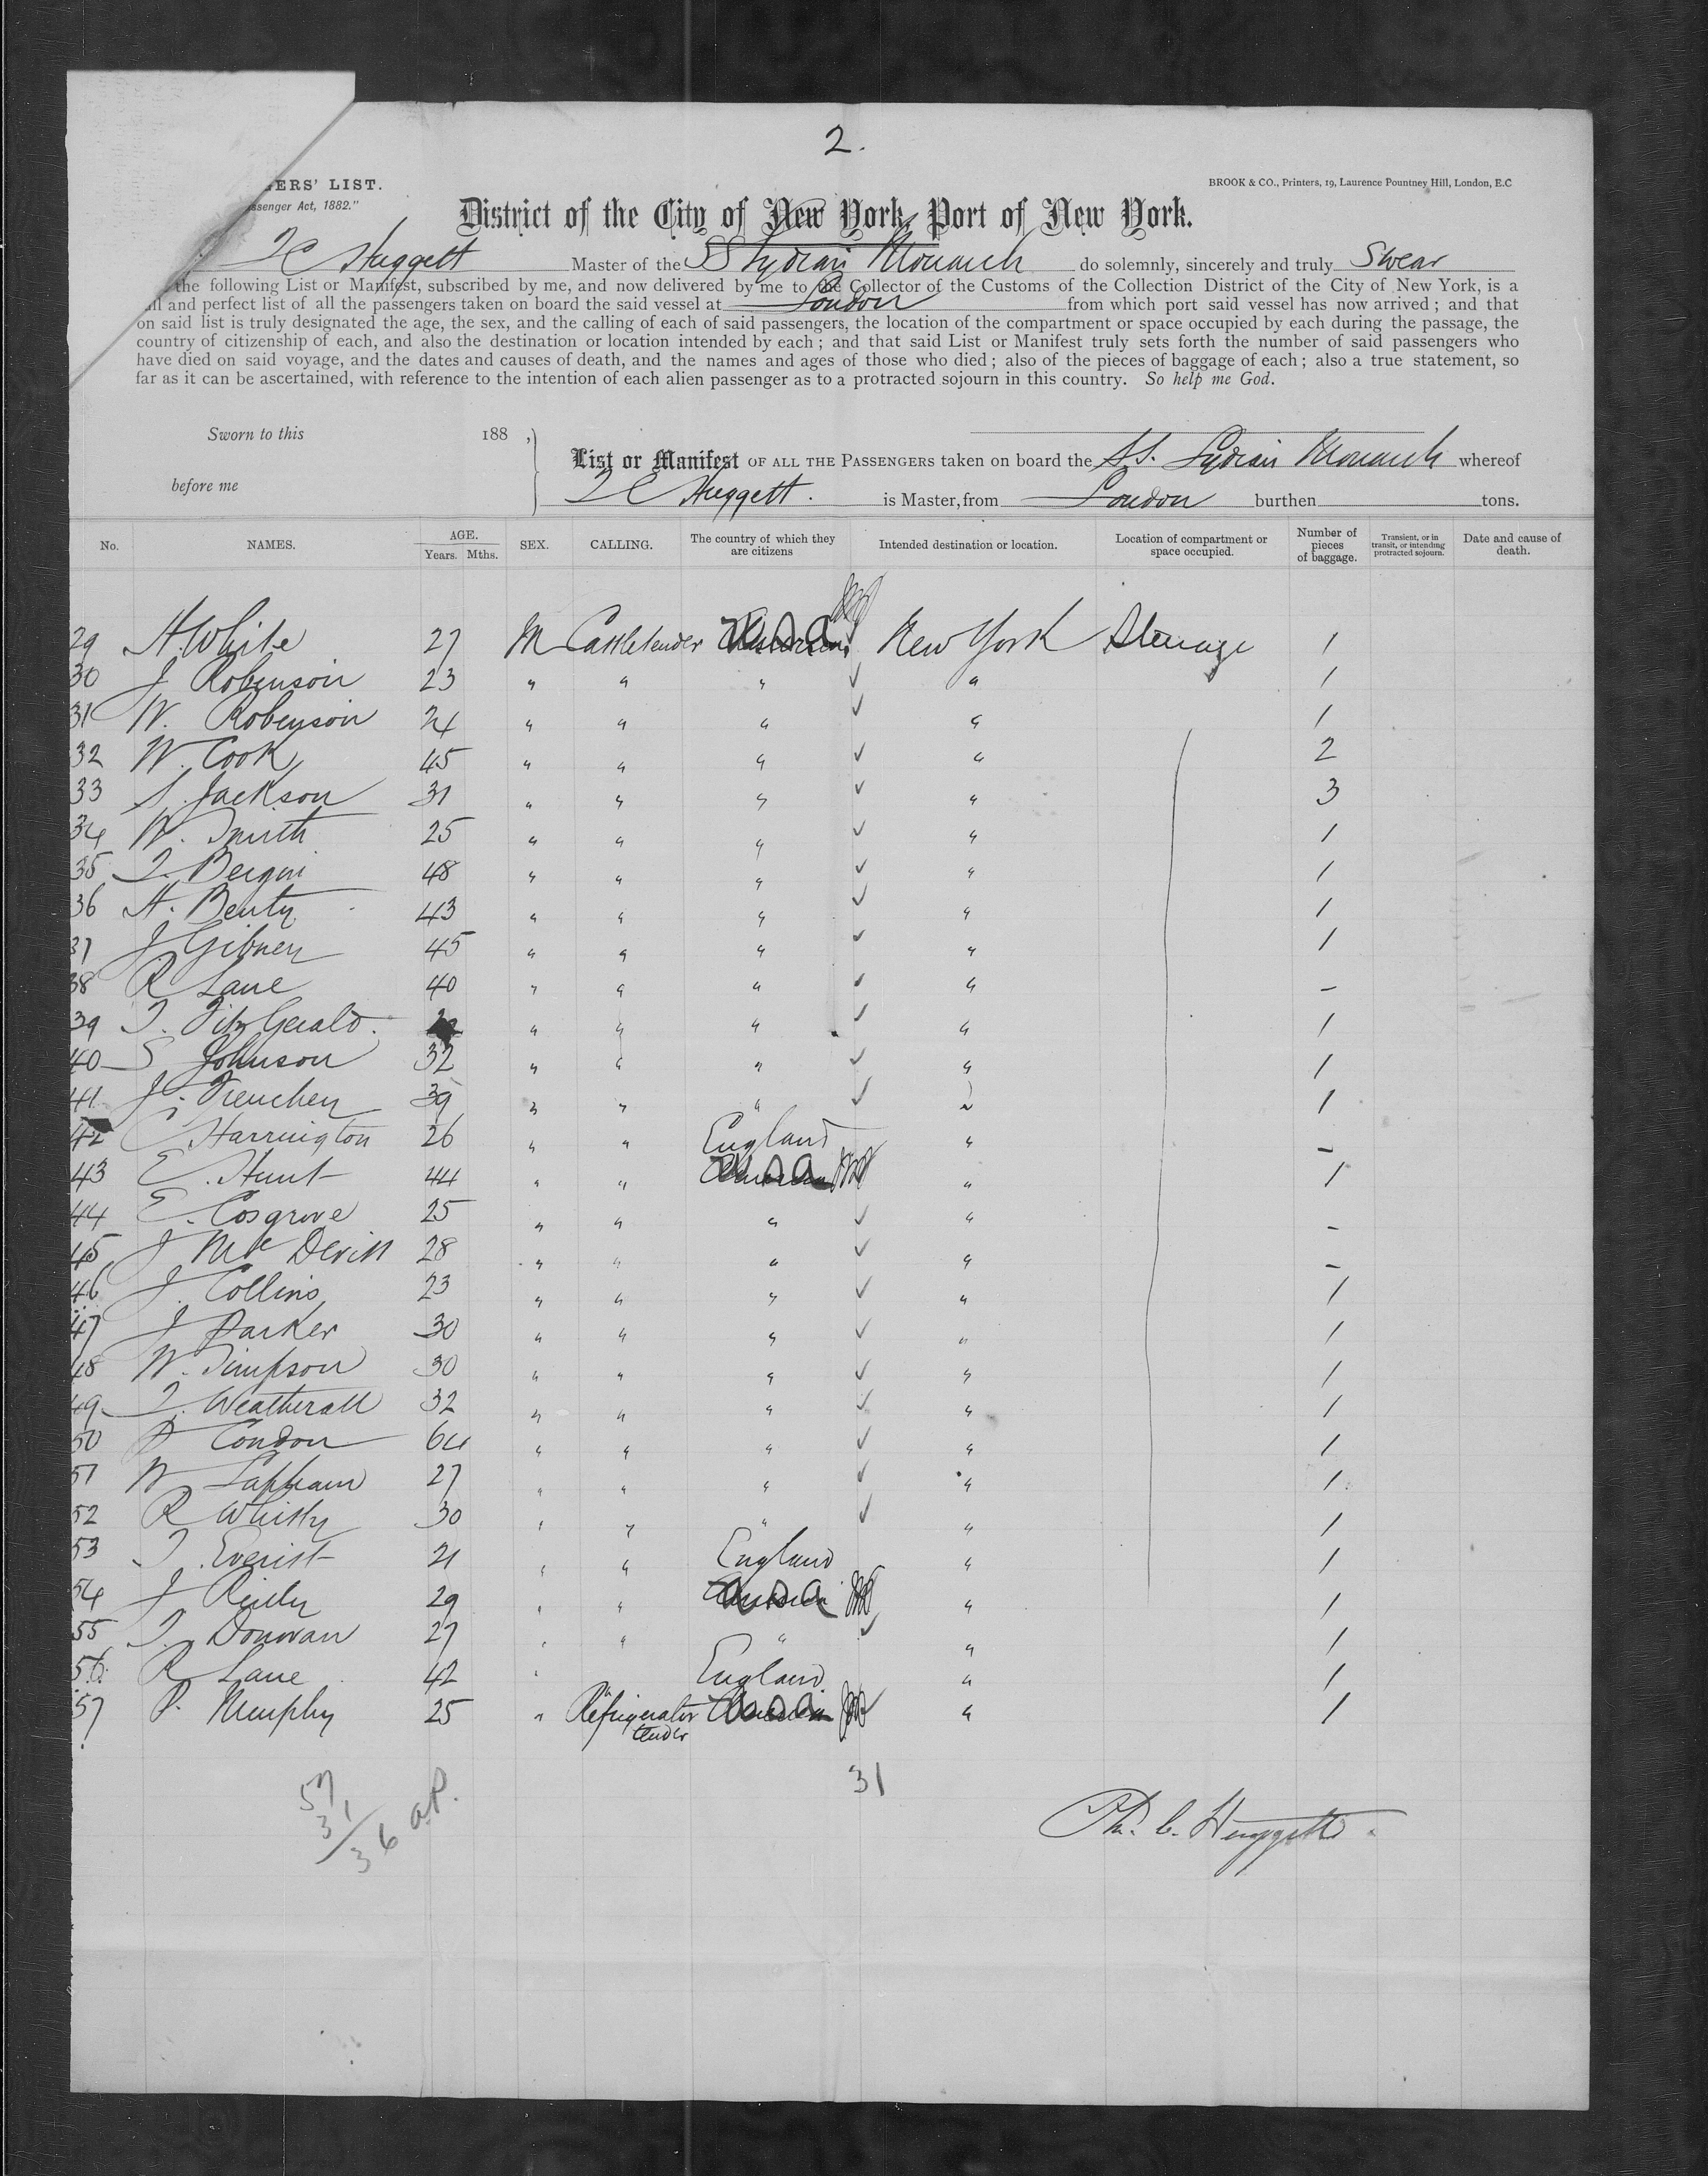 2.
GERS' LIST.
ssenger Act, 1882."
BROOK & CO., Printers, 19, Laurence Pountney Hill, London, E.C
District of the City of New York, Port of New York.
T C Huggett Master of the SS Lydian Monarch do solemnly, sincerely and truly Swear
the following List or Manifest, subscribed by me, and now delivered by me to the Collector of the Customs of the Collection District of the City of New York, is a
ll and perfect list of all the passengers taken on board the said vessel at London from which port said vessel has now arrived; and that
on said list is truly designated the age, the sex, and the calling of each of said passengers, the location of the compartment or space occupied by each during the passage, the
country of citizenship of each, and also the destination or location intended by each; and that said List or Manifest truly sets forth the number of said passengers who
have died on said voyage, and the dates and causes of death, and the names and ages of those who died; also of the pieces of baggage of each; also a true statement, so
far as it can be ascertained, with reference to the intention of each alien passenger as to a protracted sojourn in this country. So help me God.
Sworn to this 188 ,
before me
List or Manifest OF ALL THE PASSENGERS taken on board the SS. Lydian Monarch whereof
T C Huggett. is Master, from London burthen tons.
No. NAMES. AGE. Years. Mths. SEX. CALLING. The country of which they are citizens Intended destination or location. Location of compartment or space occupied. Number of pieces of baggage. Transient, or in transit, or intending protracted sojourn. Date and cause of death.
29 H. White 27 M Cattletender USA New York Steerage 1
30 J Robinson 23 " " " " 1
31 W. Robenson 24 " " " " 1
32 W. Cook 45 " " " " 2
33 S. Jackson 31 " " " " 3
34 W. Smith 25 " " " " 1
35 T. Bergin 48 " " " " 1
36 H. Benty 43 " " " " 1
37 J Gibney 45 " " " " 1
38 R Lane 40 " " " " -
39 T. FitzGerald. " " " " 1
40 S Johnson 32 " " " " 1
41 J. Trenchen 39 " " " " 1
42 C Harrington 26 " " England " -
43 E. Hunt 44 " " USA " 1
44 E. Cosgrove 25 " " " " -
45 J McDevitt 28 " " " " -
46 J. Collins 23 " " " " 1
47 J Parker 30 " " " " 1
48 W. Simpson 30 " " " " 1
49 T. Weatherall 32 " " " " 1
50 P Condon 64 " " " " 1
51 W Lapham 27 " " " " 1
52 R Whitty 30 " " " " 1
53 T. Everist 21 " " England " 1
54 J Reidy 29 " " USA " 1
55 T. Donovan 27 " " " " 1
56 R Lane 42 " " England " 1
57 P. Murphy 25 " Refrigerator tender USA " 1
31
57
31
36 a.P.
Th. C. Huggett.